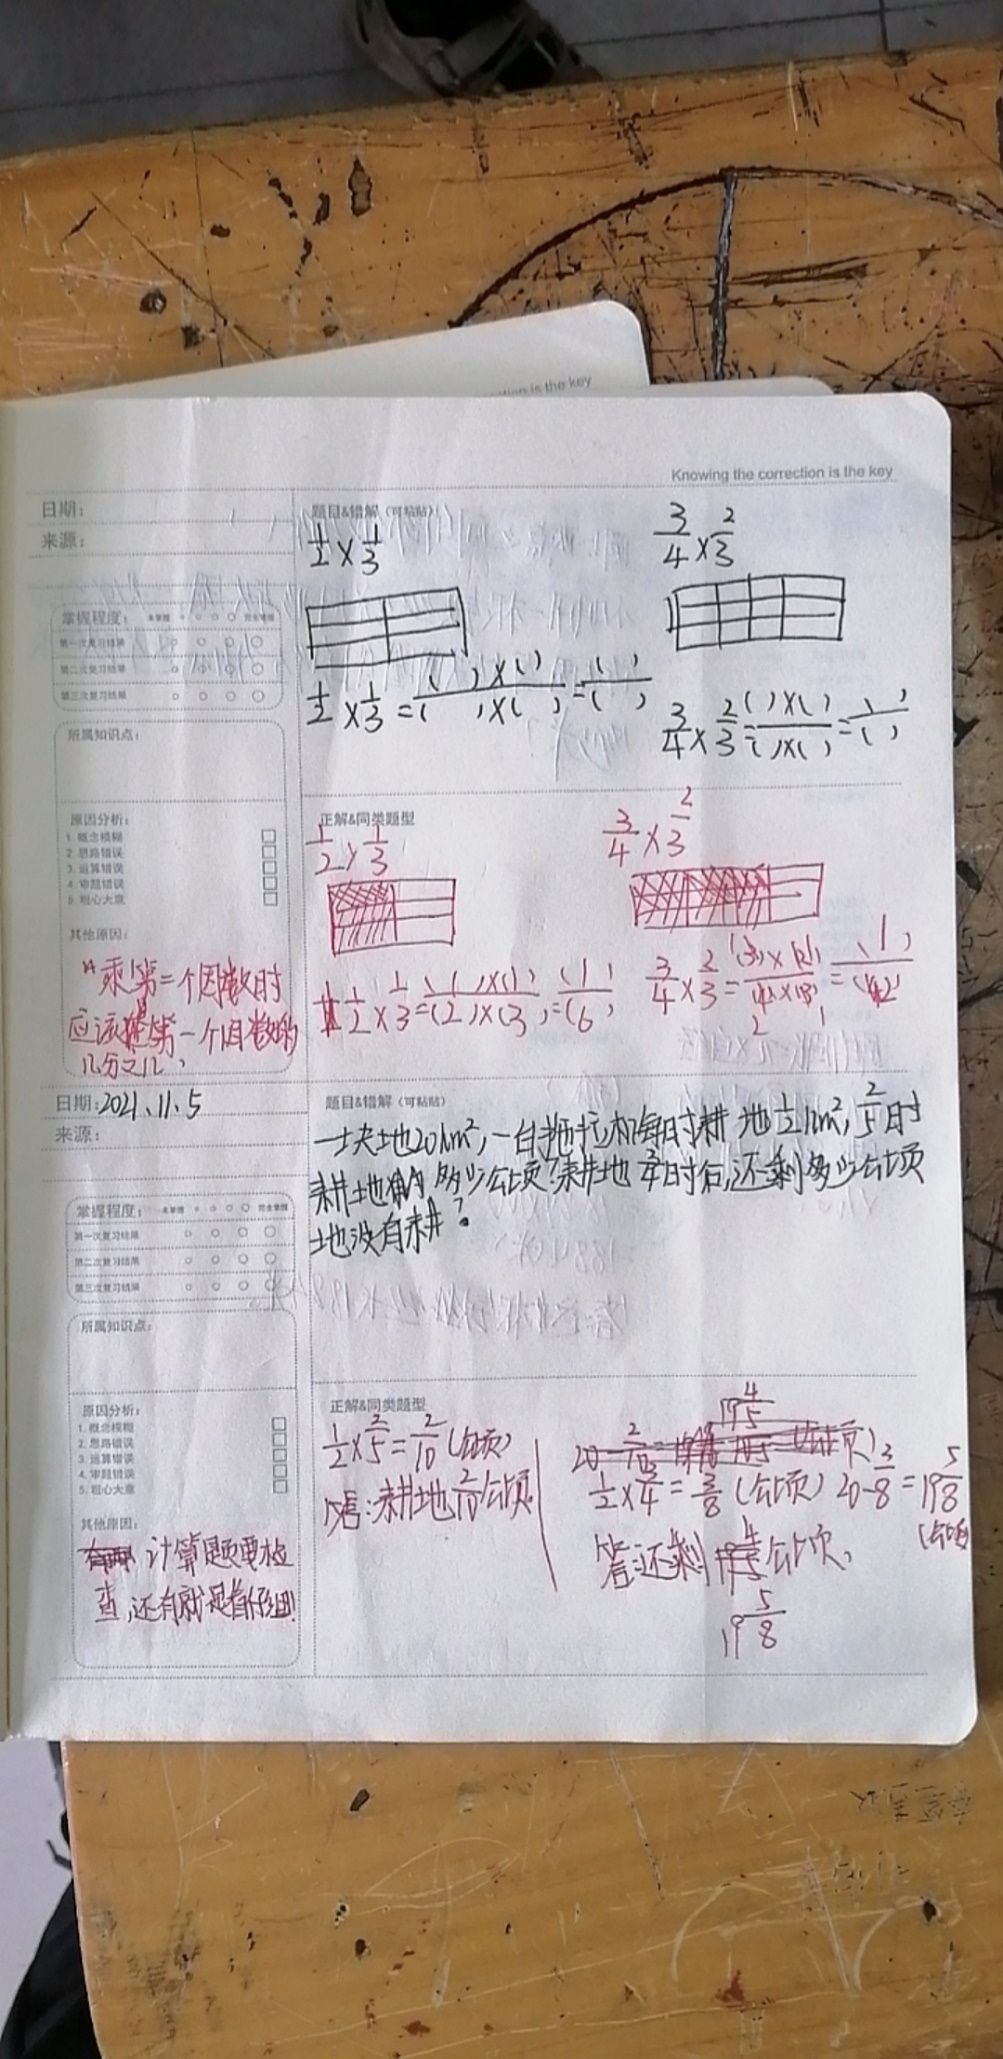 ction is the key
Knowing the correction is the key
日期：
来源：
掌握程度： 未掌握 完全掌握
第一次复习结果
第二次复习结果
第三次复习结果
所属知识点：
原因分析：
1. 概念模糊
2. 思路错误
3. 运算错误
4. 审题错误
5. 粗心大意
其他原因：
乘第二个因数时
应该是第一个因数的
几分之几，
题目&错解（可粘贴）
1/2 × 1/3
3/4 × 2/3
1/2 × 1/3 = ( )×( )/( )×( ) = ( )/( )
3/4 × 2/3 = ( )×( )/( )×( ) = ( )/( )
正解&同类题型
1/2 × 1/3
3/4 × 2/3
1/2 × 1/3 = (1)×(1)/(2)×(3) = (1)/(6)
3/4 × 2/3 =
日期：2021.11.5
来源：
掌握程度： 未掌握 完全掌握
第一次复习结果
第二次复习结果
第三次复习结果
所属知识点：
原因分析：
1. 概念模糊
2. 思路错误
3. 运算错误
4. 审题错误
5. 粗心大意
其他原因：
计算题要检
查，还有就是看仔细！
题目&错解（可粘贴）
一块地20hm²，一台拖拉机每时耕地1/2hm²，2/5时
耕地多少公顷？耕地3/4时后，还剩多少公顷
地没有耕？
正解&同类题型
1/2 × 2/5 = 2/10（公顷）
答：耕地2/10公顷
1/2 × 3/4 = 3/8（公顷） 20-3/8 = 19 5/8
（公顷）
答：还剩 公顷、
19 5/8